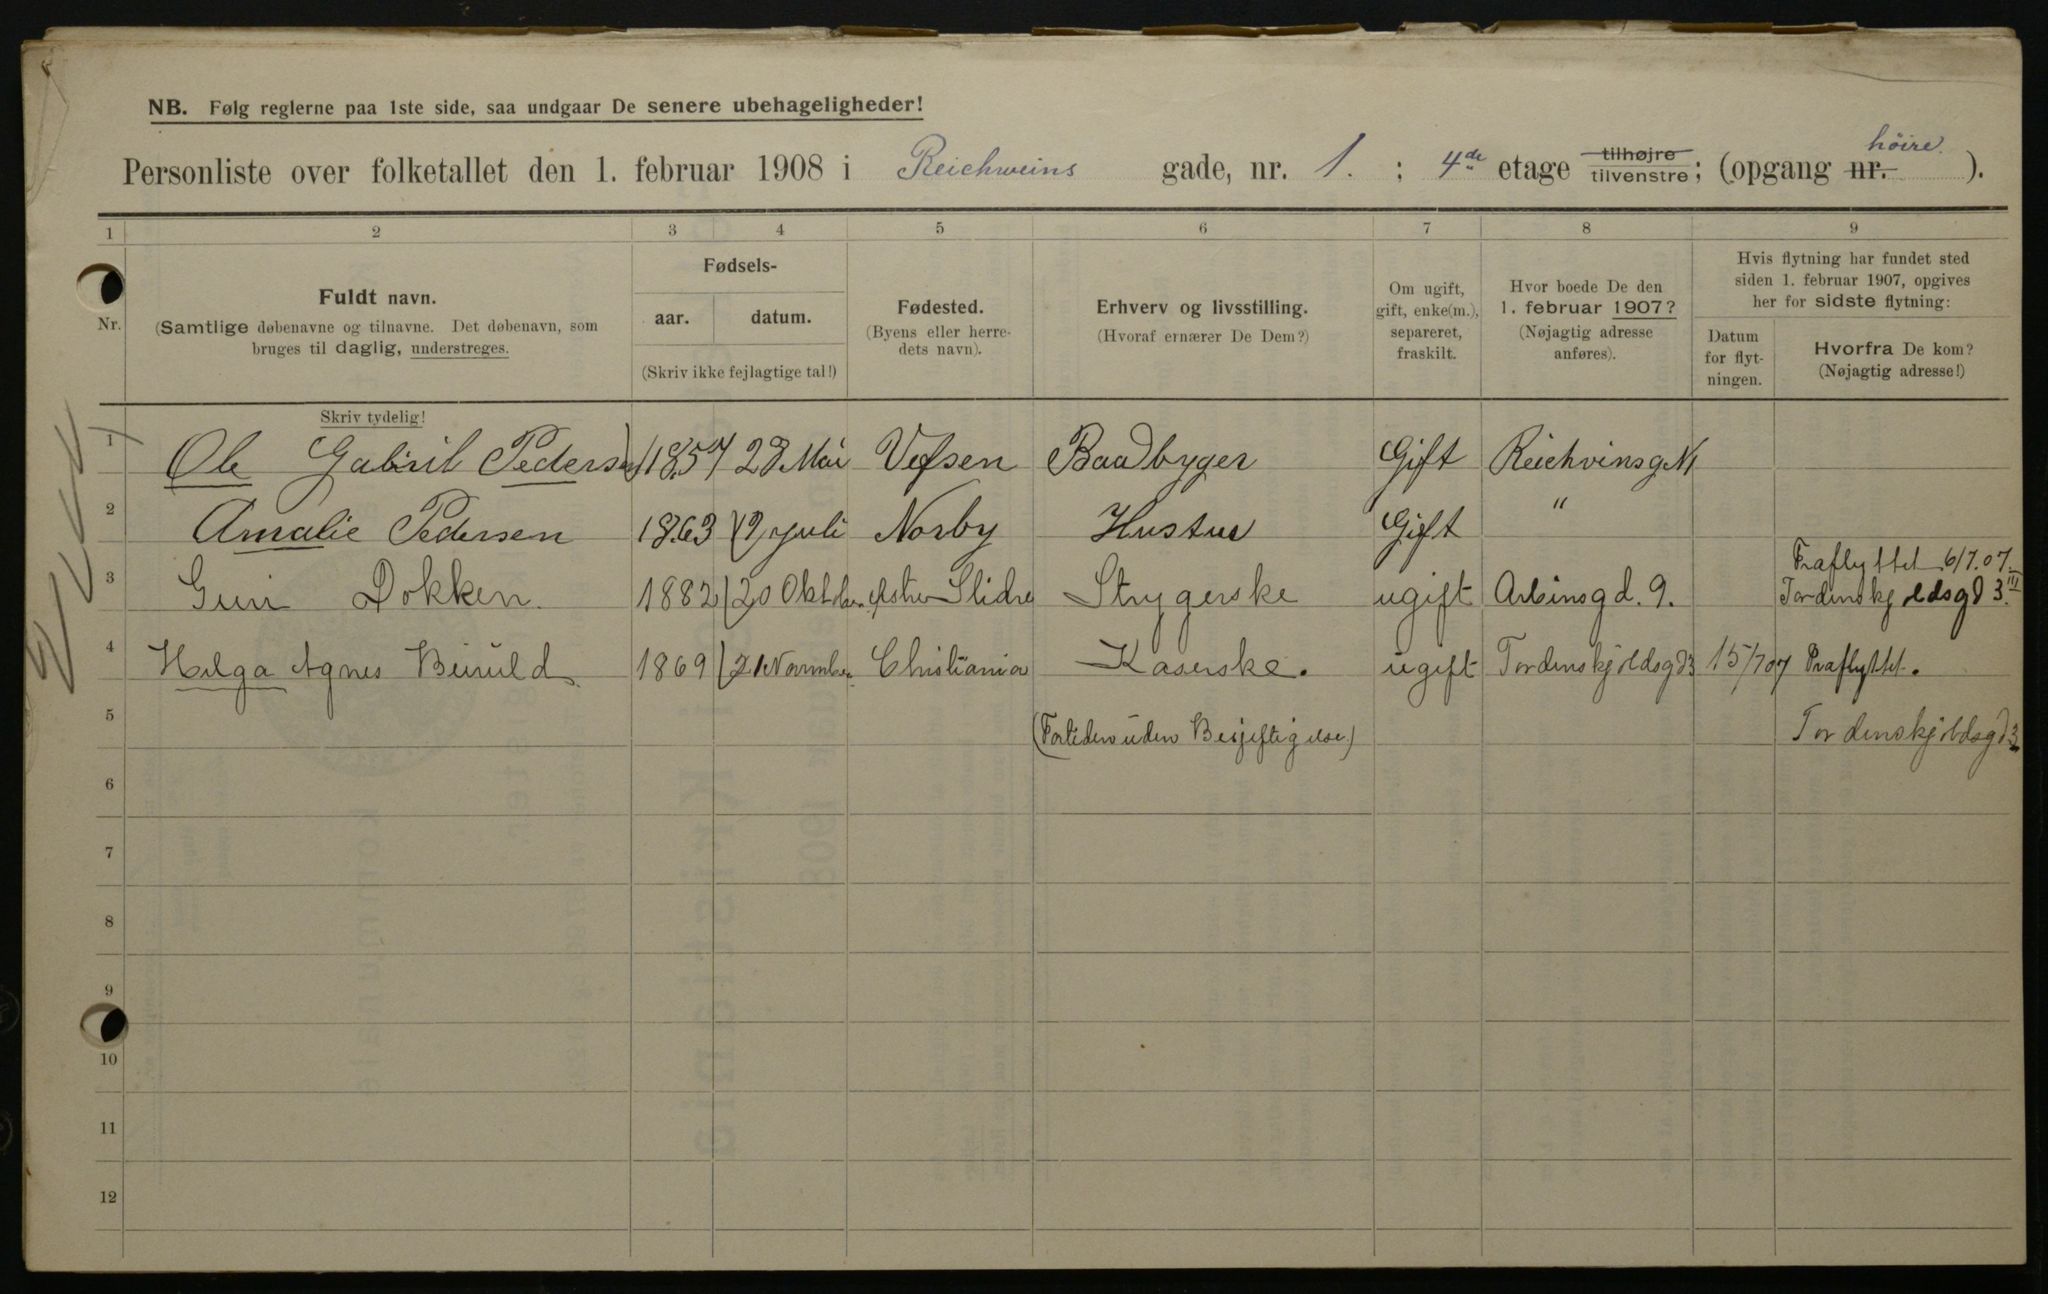 NB. Følg reglerne paa 1ste side, saa undgaar De senere ubehageligheder!
høire.
Personliste over folketallet den 1. februar 1908 i Reichweins gade, nr. 1. : 4de etage tilhøjre tilvenstre; (opgang nr. ).
1 2 3 4 5 6 7 8 9
Nr.
Fuldt navn.
(Samtlige døbenavne og tilnavne. Det døbenavn, som
bruges til daglig, understreges.
Skriv tydelig!
Fødsels-
aar. datum.
(Skriv ikke fejlagtige tal!)
Fødested.
(Byens eller herre-
dets navn).
Erhverv og livsstilling.
(Hvoraf ernærer De Dem?)
Om ugift,
gift, enke(m.),
separeret,
fraskilt.
Hvor boede De den
1. februar 1907?
(Nøjagtig adresse
anføres).
Hvis flytning har fundet sted
siden 1. februar 1907, opgives
her for sidste flytning:
Datum
for flyt-
ningen.
Hvorfra De kom?
(Nøjagtig adresse!)
1 Ole Gabriil Pedersen 1857 28 Mai Vefsen Baadbyger Gift Reichvinsg N1
2 Amalie Pedersen 1863 12 juli Norby Hustru Gift "
Fraflyttet 6/7.07.
3 Guri Dokken. 1882 20 Oktober Slidre Strygerske ugift Arbinsgd. 9. Tordenskjoldsgd 3 III
4 Helga Agnes Beiruld. 1869 21 November Christiania Kaserske. ugift Tordenskjoldsgd 3 15/7 07 Fraflyttet.
5 (Fortiden uden Besjeftigelse) Tordenskjoldsgd 3
6
7
8
9
10
11
12